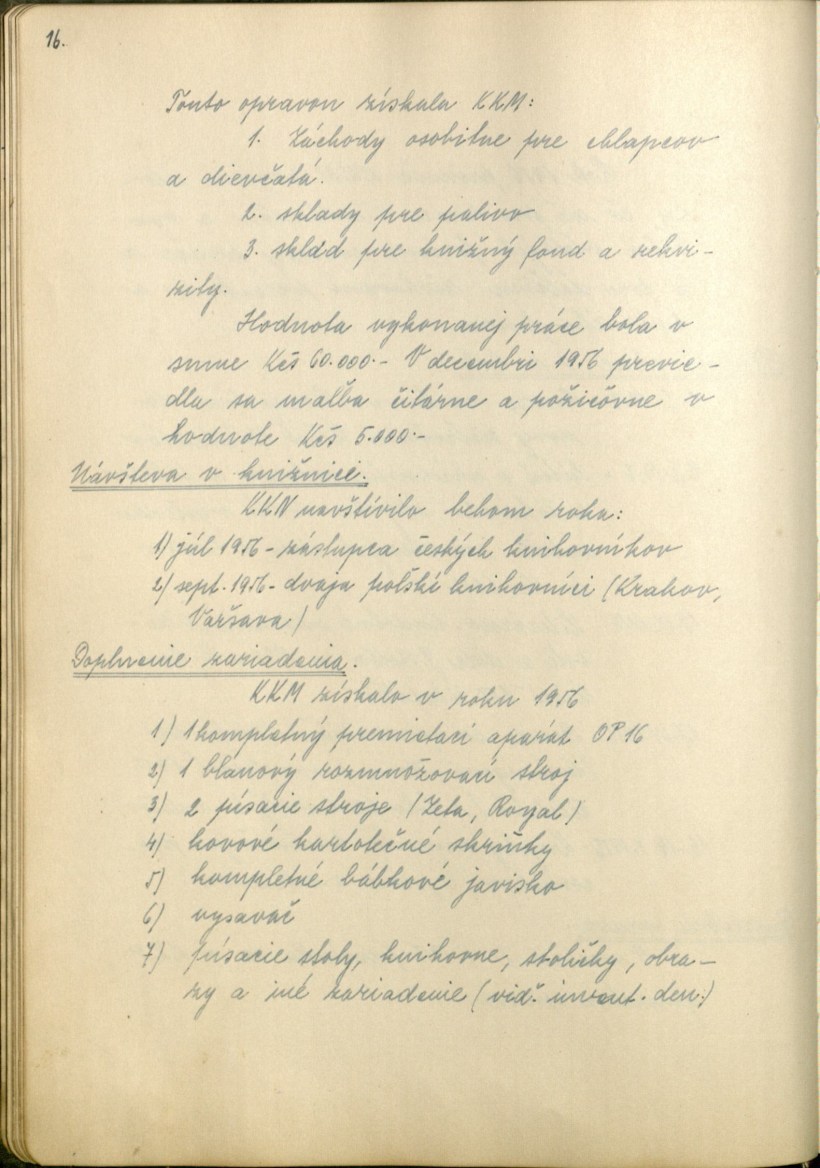 16.
Touto opravou získala KKM:
1. Záchody osobitne pre chlapcov
a dievčatá.
2. sklady pre palivo
3. sklad pre knižný fond a rekvi-
zity.
Hodnota vykonanej práce bola v
sume Kčs 60.000.- V decembri 1956 previe-
dla sa maľba čitárne a požičovne v
hodnote Kčs 5.000.-
Návšteva v knižnici.
KKN navštívilo behom roku:
1) júl 1956 - zástupca českých knihovníkov
2) sept. 1956 - dvaja polskí knihovníci (Krakov,
Varšava)
Doplnenie zariadenia.
KKM získalo v roku 1956
1) 1 kompletný premietací aparát OP 16
2) 1 blanový rozmnožovací stroj
3) 2 písacie stroje (Zeta, Royal)
4) kovové kartotečné skrinky
5) kompletné bábkové javisko
6) vysavač
7) písacie stoly, knihovne, stoličky, obra-
zy a iné zariadenie (viď. invent. den.)